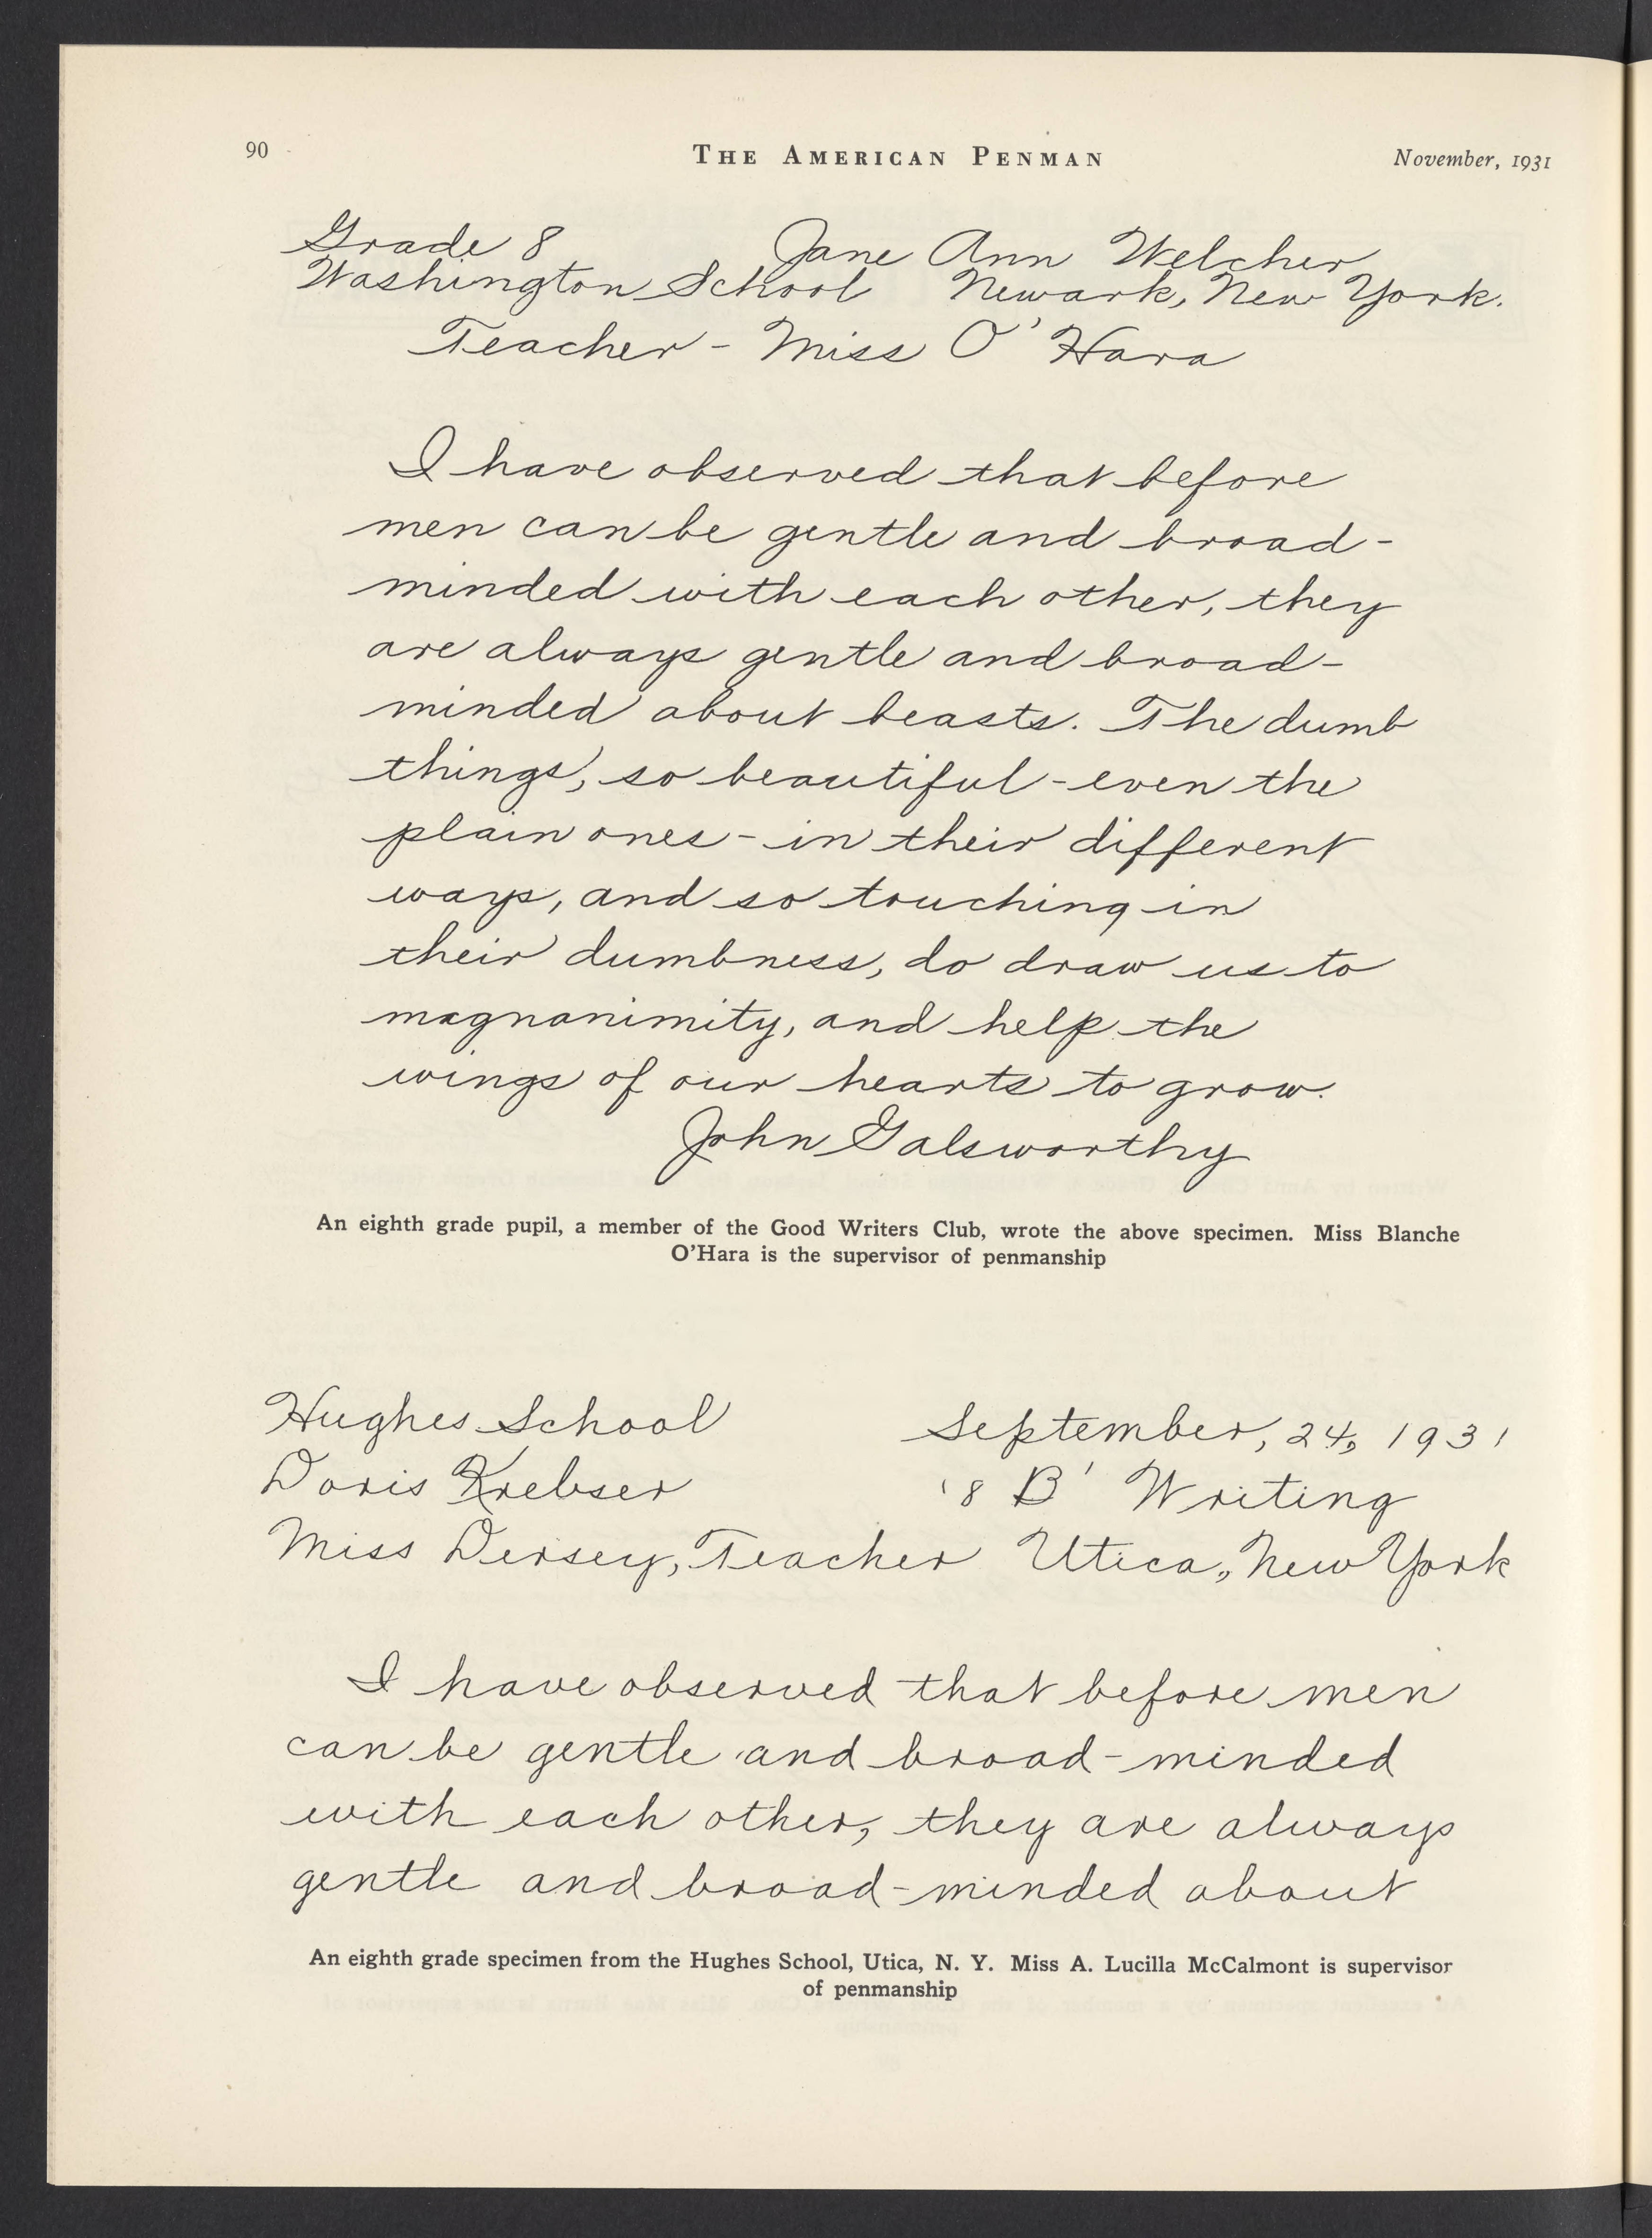 90 THE AMERICAN PENMAN November, 1931
Grade 8 Jane Ann Welcher
Washington School Newark, New York.
Teacher - Miss O'Hara
I have observed that before
men can be gentle and broad-
minded with each other, they
are always gentle and broad-
minded about beasts. The dumb
things, so beautiful - even the
plain ones - in their different
ways, and so touching in
their dumbness, do draw us to
magnanimity, and help the
wings of our hearts to grow.
John Galsworthy
An eighth grade pupil, a member of the Good Writers Club, wrote the above specimen. Miss Blanche
O'Hara is the supervisor of penmanship
Hughes School September, 24, 1931
Doris Krebser '8 B' Writing
Miss Dersey, Teacher Utica, New York
I have observed that before men
can be gentle and broad-minded
with each other, they are always
gentle and broad-minded about
An eighth grade specimen from the Hughes School, Utica, N. Y. Miss A. Lucilla McCalmont is supervisor
of penmanship